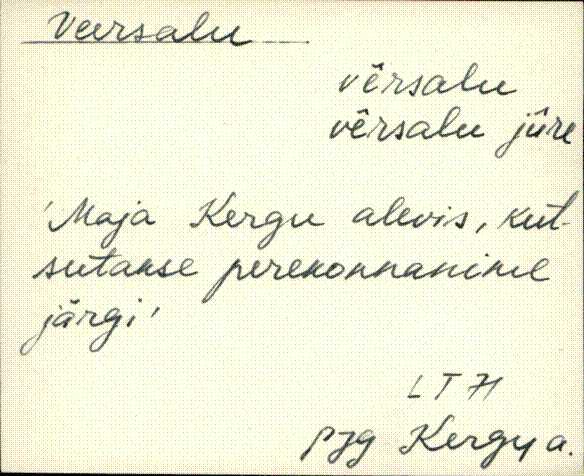 Veersalu
vêrsalu
vêrsalu jûre
'Maja Kergu alevis, kut-
sutakse perekonnanime
järgi'
LT 71
PJg Kergu a.